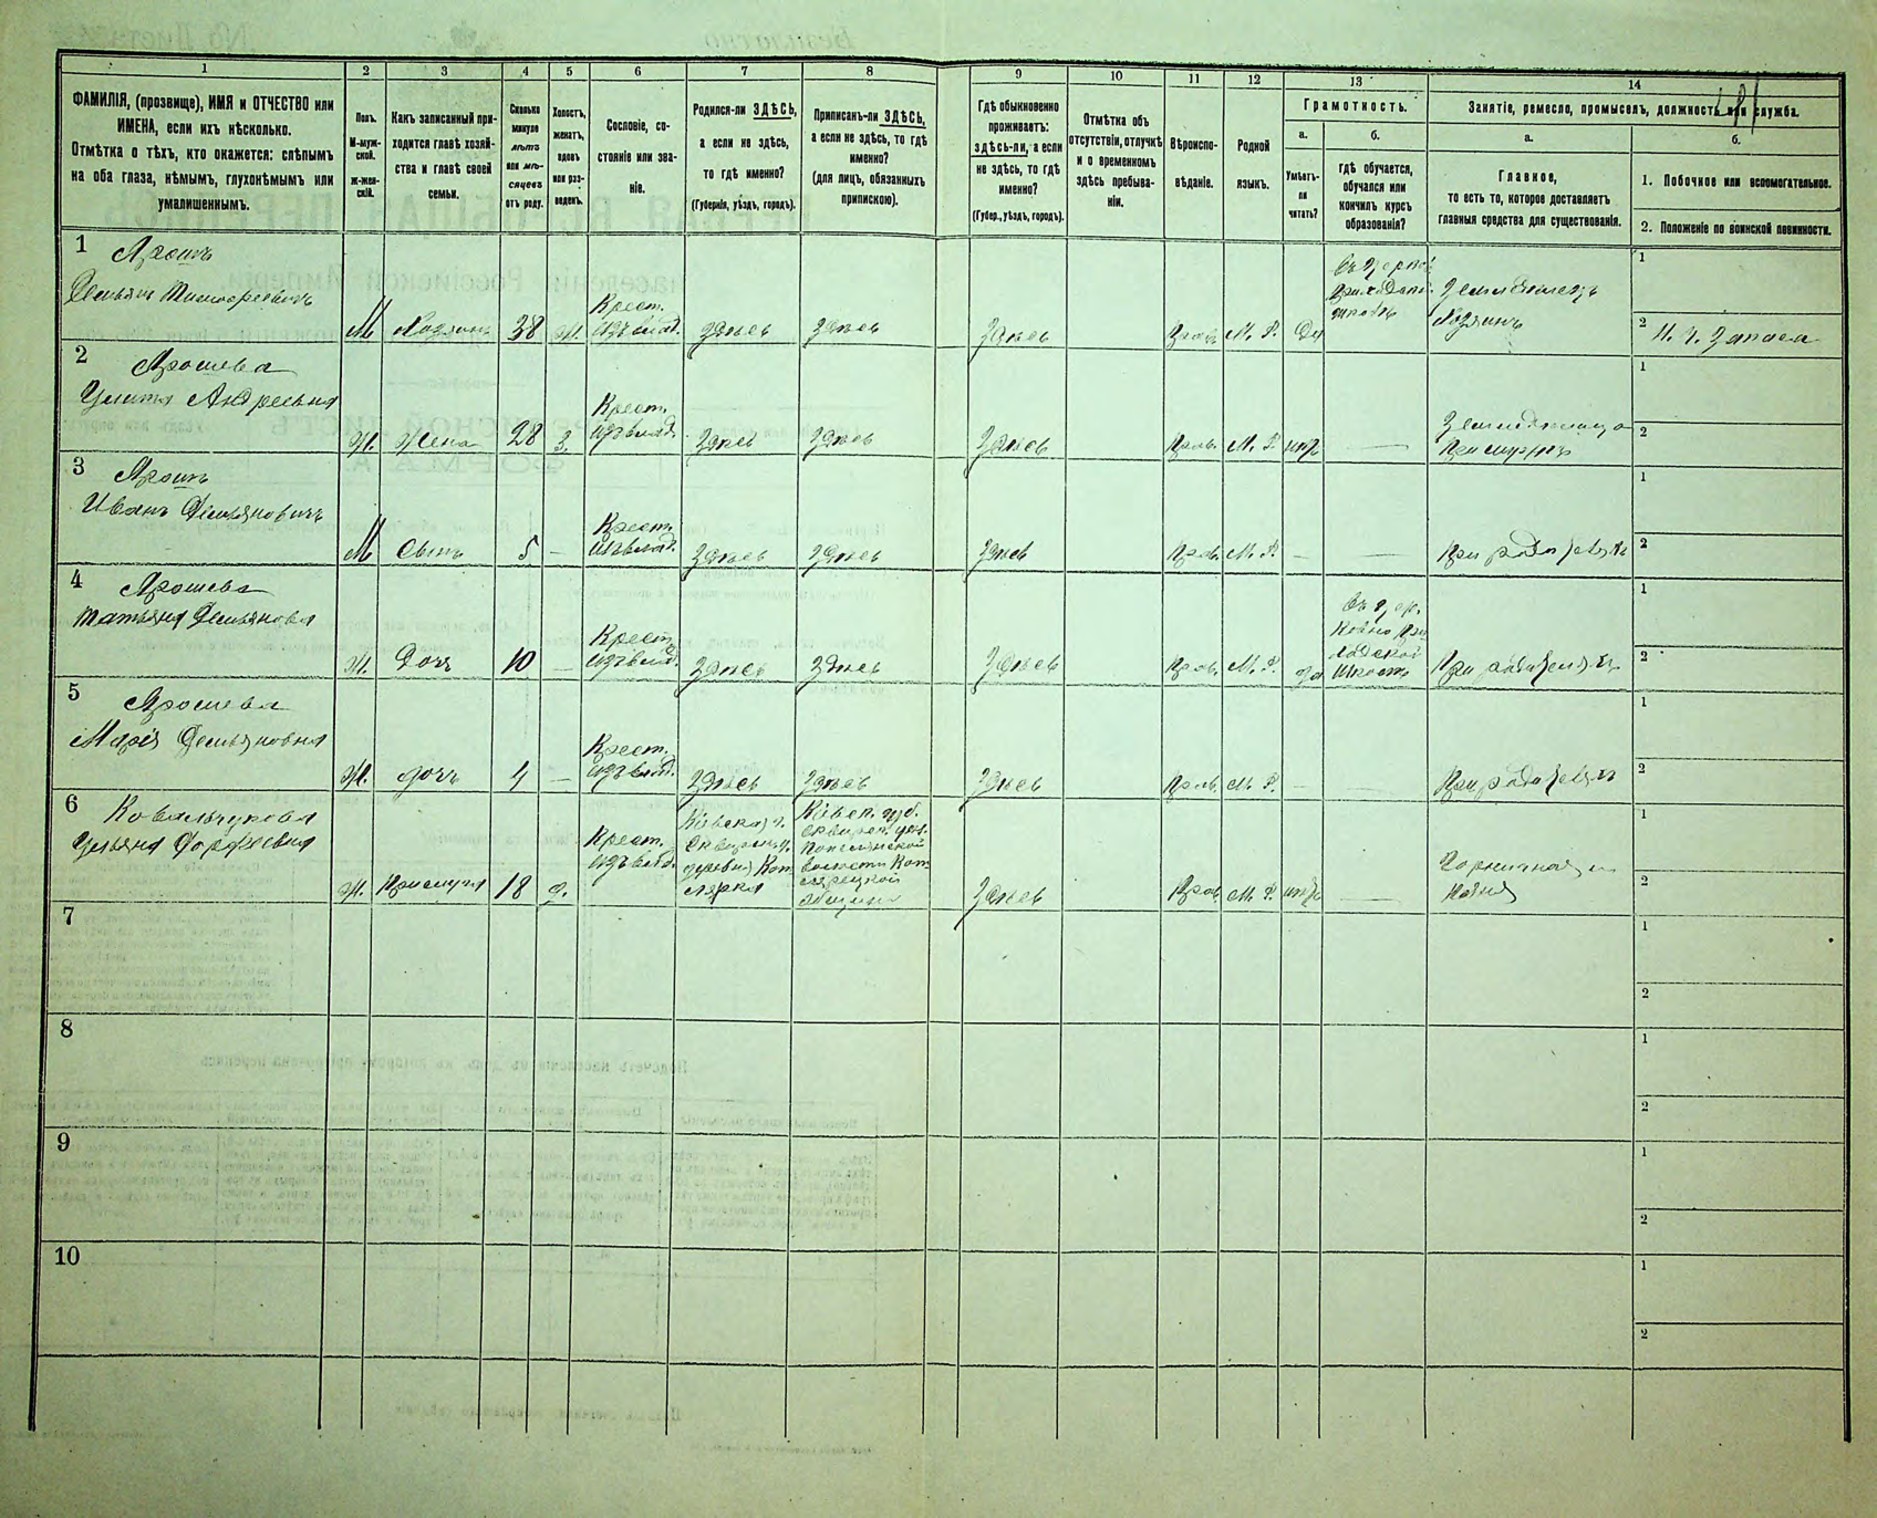 1
2
3
4
5
6
7
8
9
10
11
12
13
14
ФАМИЛІЯ, (прозвище), ИМЯ и ОТЧЕСТВО или
ИМЕНА, если ихъ нѣсколько.
Отмѣтка о тѣхъ, кто окажется: слѣпымъ
на оба глаза, нѣмымъ, глухонѣмымъ или
умалишеннымъ.
Полъ.
М-муж-
ской.
Ж-жен-
скій.
Какъ записанный при-
ходится главѣ хозяй-
ства и главѣ своей
семьи.
Сколько
минуло
лѣтъ
или мѣ-
сяцевъ
отъ роду.
Холостъ,
женатъ,
вдовъ
или раз-
веденъ.
Сословіе, со-
стояніе или зва-
ніе.
Родился-ли ЗДѢСЬ,
а если не здѣсь,
то гдѣ именно?
(Губернія, уѣздъ, городъ).
Приписанъ-ли ЗДѢСЬ,
а если не здѣсь, то гдѣ
именно?
(для лицъ, обязанныхъ
припискою).
Гдѣ обыкновенно
проживаетъ:
здѣсь-ли, а если
не здѣсь, то гдѣ
именно?
(Губер., уѣздъ, городъ).
Отмѣтка объ
отсутствіи, отлучкѣ
и о временномъ
здѣсь пребыва-
ніи.
Вѣроиспо-
вѣданіе.
Родной
языкъ.
Грамотность.
а.
Умѣетъ-
ли
читать?
б.
гдѣ обучается,
обучался или
кончилъ курсъ
образованія?
Занятіе, ремесло, промыселъ, должность или служба.
а.
Главное,
то есть то, которое доставляетъ
главныя средства для существованія.
б.
1. Побочное или вспомогательное.
2. Положеніе по воинской повинности.
1 Ярошъ
Демьянъ Тимофеевичъ
М Хозяинъ 38 ж. Крест.
изъ влад. Здѣсь Здѣсь Здѣсь Прав. М. Р. Да
приходской
школѣ
Земледѣлецъ
Хозяинъ
1
2 Н. Ч. Запаса
2 Ярошева
Улита Андреевна
Ж. Жена 28 З. Крест.
изъ влад. Здѣсь Здѣсь Здѣсь Прав. М. Р. нѣтъ —
При мужѣ
1
2
3 Ярошъ
Иванъ Демьяновичъ
М Сынъ 5 — Крест.
изъ влад. Здѣсь Здѣсь Здѣсь Прав. М. Р. — — При родителяхъ
1
2
4 Ярошева
Татьяна Демьянова
Ж. Дочь 10 — Крест.
изъ влад. Здѣсь Здѣсь Здѣсь Прав. М. Р. да
Въ цер.
ковно при
ходской
школѣ
При родителяхъ
1
2
5 Ярошева
Марія Демьяновна
Ж. дочь 4 — Крест.
изъ влад. Здѣсь Здѣсь Здѣсь Прав. М. Р. — — При родителяхъ
1
2
6 Ковальчукова
Ульяна Дорофеевна
Ж. Прислуга 18 д. Крест.
изъ влад.
Кіевская г.
Сквирск. у.
деревня Кот
лярка
Кіевск. губ.
Сквирск. уѣз.
Попельнской
волости Кот-
лярецкой
общины
Здѣсь Прав. М. Р. нѣтъ —
Горничная и
няня
1
2
7
1
2
8
1
2
9
1
2
10
1
2